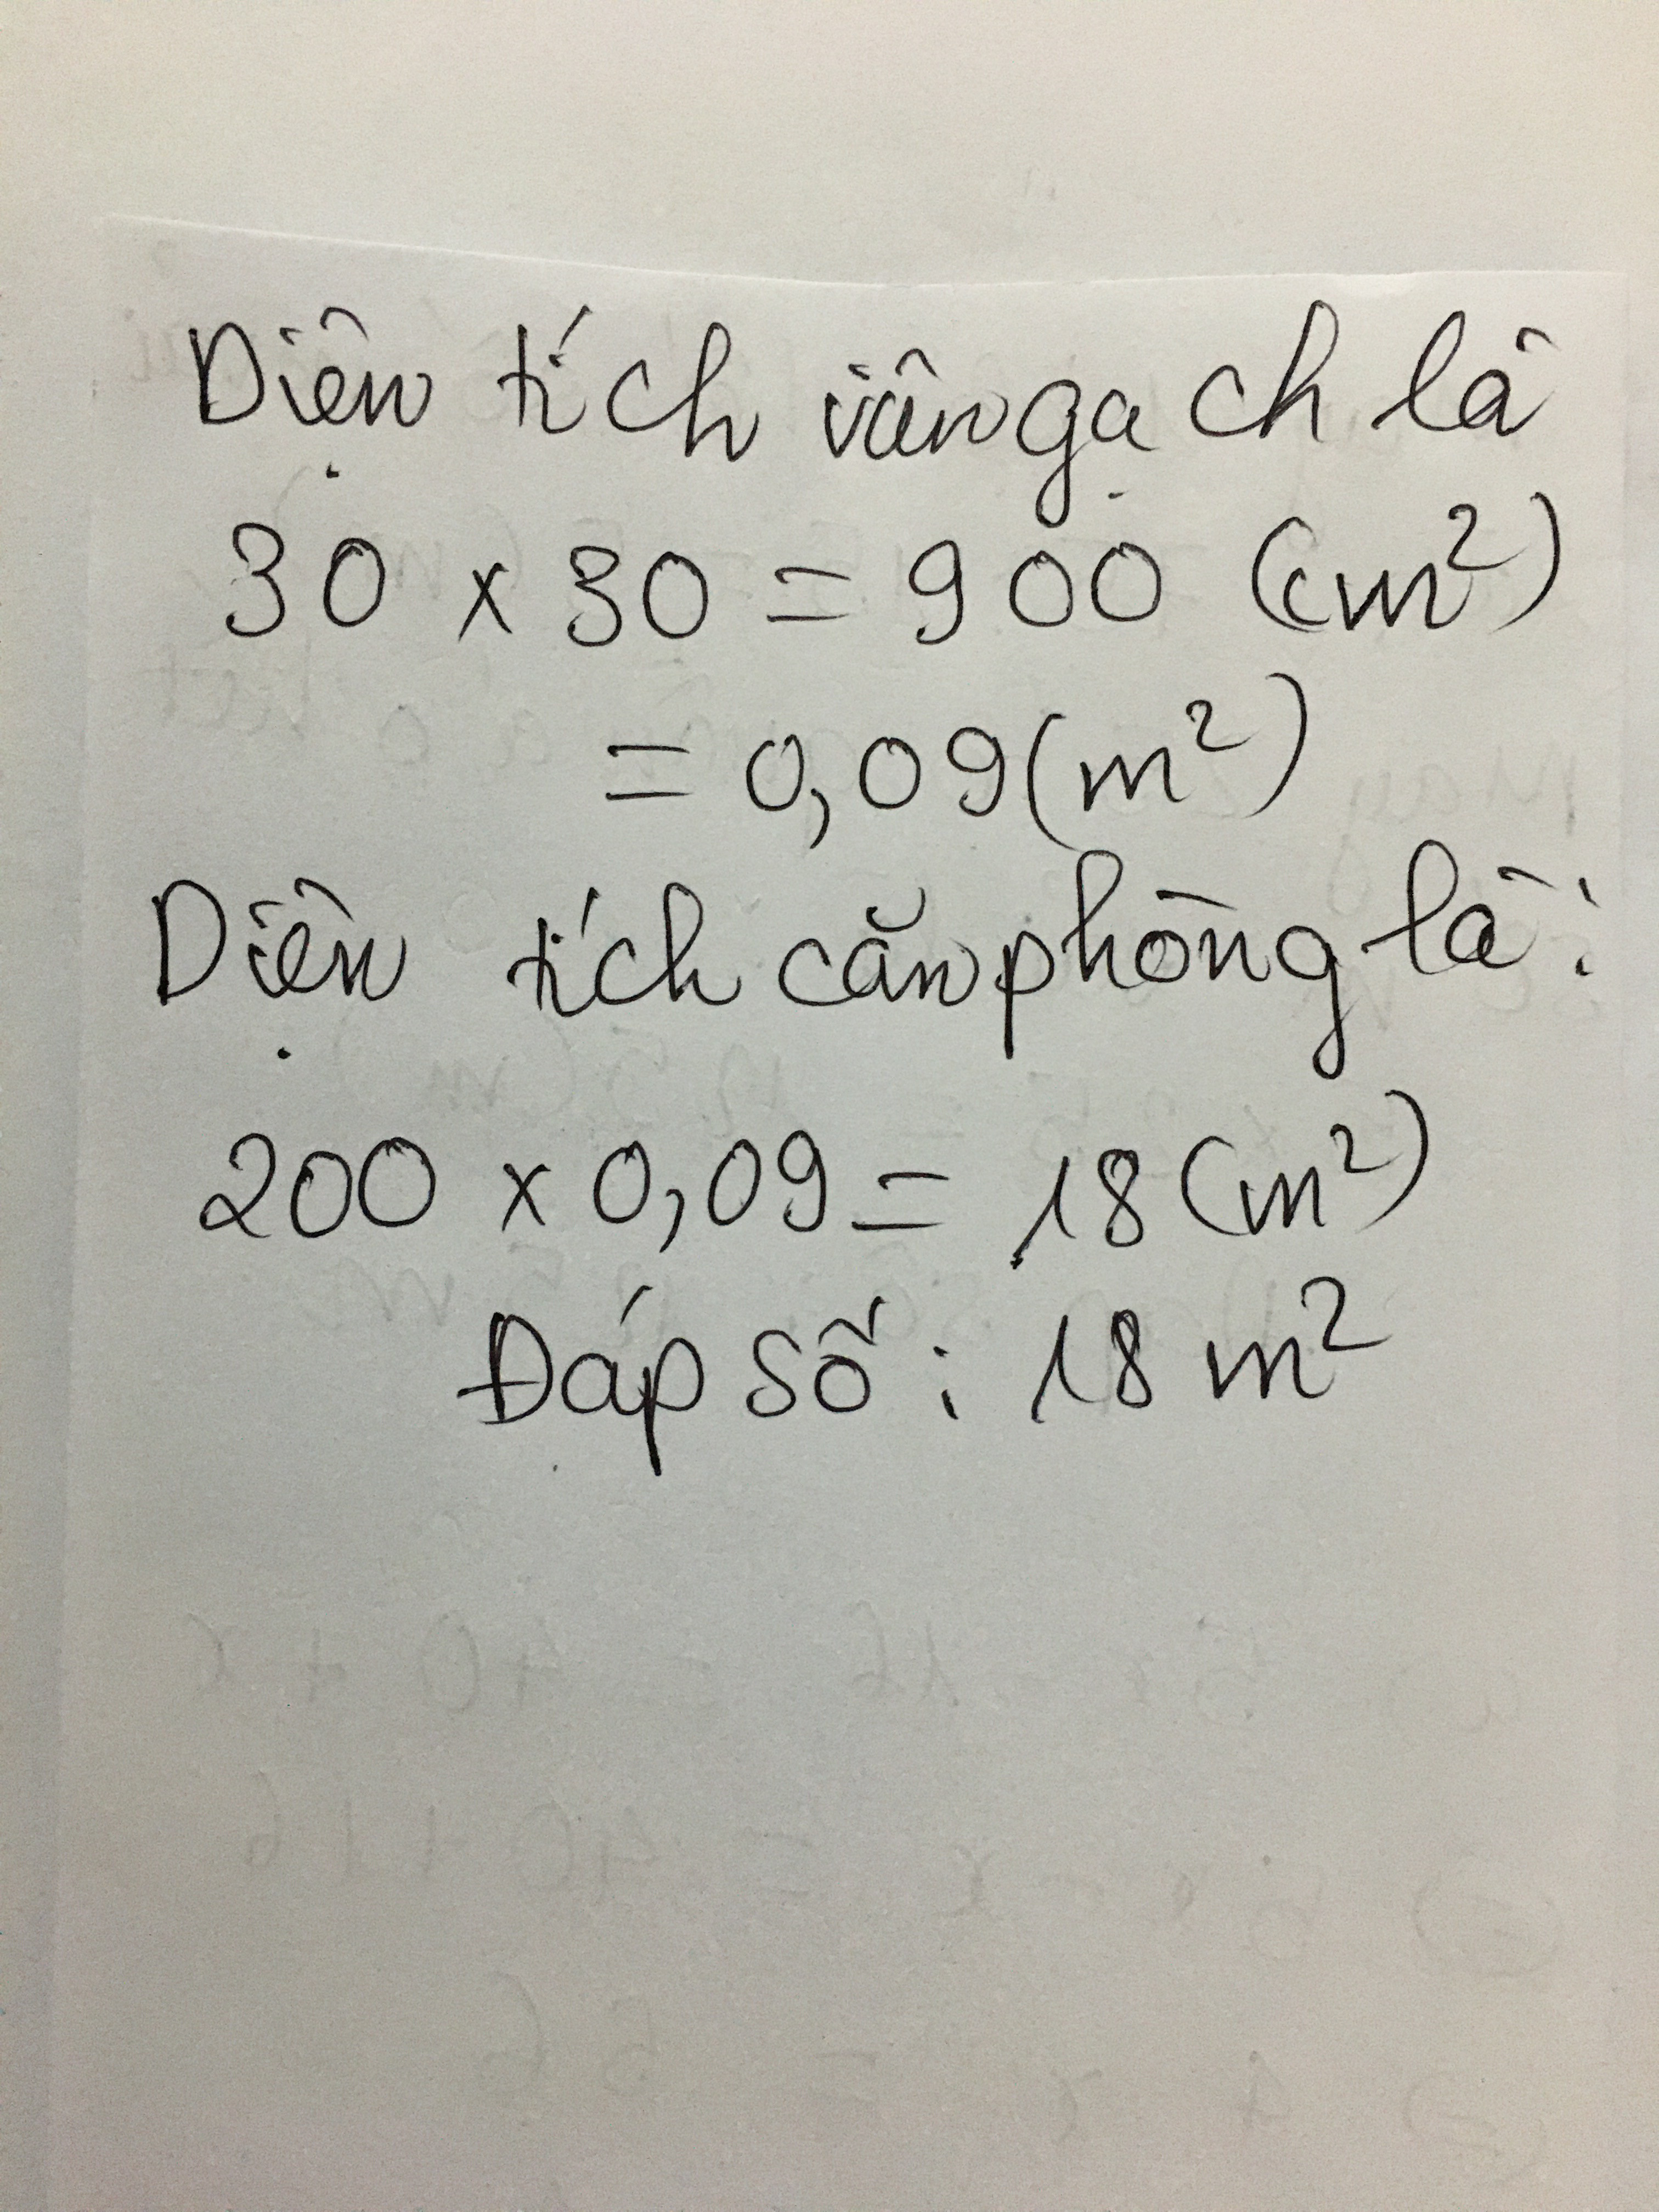 Diện tích viên gạch là
30 x 30 = 900 (cm²)
= 0,09 (m²)
Diện tích căn phòng là:
200 x 0,09 = 18 (m²)
Đáp số: 18 m²